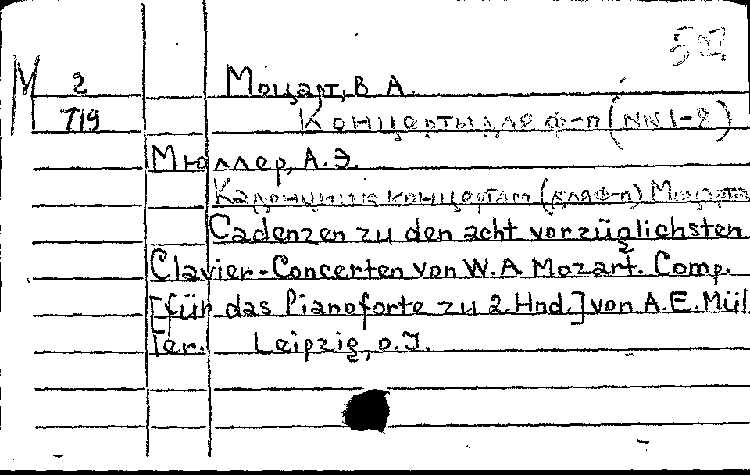 М 2 Моцарт, В А.
719 Концерты для ф-п (NN 1-8)
Мюллер, А.Э.
Каденции к концертам (для ф-п) Моцарта
Cadenzen zu den acht vorzüglichsten
Clavier-Concerten von W.A Mozart. Comp.
[für das Pianoforte zu 2. Hnd.] von A.E. Mül
ler. Leipzig, o.J.